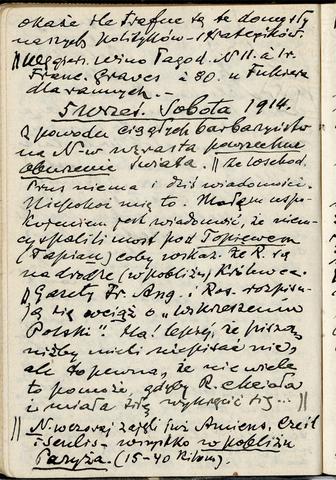 okaże ile trafne są te domysły
naszych polityków - strategików.
|| Węgiersk. wino łagod. N 11. à 1 r.
Franc. Graves à 80. u Fuksa
dla rannych. -
5 wrześ. Sobota 1914.
Z powodu ciągłych barbarzyństw
na N-w wzrasta powszechne
oburzenie świata. || Ze wschod.
Prus niema i dziś wiadomości.
Niepokoi mię to. Małem uspo-
kojeniem jest wiadomość, że niem-
cy spalili most pod Tapiewem
(Tapiau) coby wskaz. że R. są
na drodze (w pobliżu) Królewca.
|| Gazety Fr. Ang. i Ros. rozpisu-
ją się wciąż o "wskrzeszeniu
Polski". Ha! lepiej, że piszą,
niżby mieli nie pisać nic,
ale to pewna, że nie wiele
to pomoże, gdyby R. chciała
i miała siłę wykręcić się... ||
|| N. wczoraj zajęli już Amiens, Creil
i Senlis - wszystko w pobliżu
Paryża (15-40 kilom).